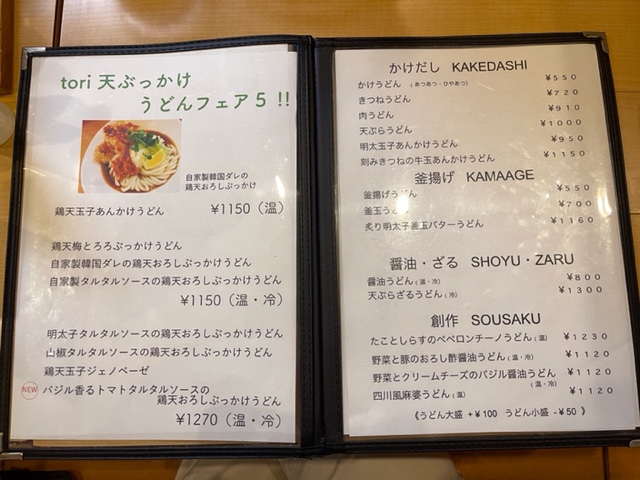 tori 天ぶっかけ
うどんフェア５ !!
自家製韓国ダレの
鶏天おろしぶっかけ
鶏天玉子あんかけうどん ¥1150（温）
鶏天梅とろろぶっかけうどん
自家製韓国ダレの鶏天おろしぶっかけうどん
自家製タルタルソースの鶏天おろしぶっかけうどん
¥1150（温・冷）
明太子タルタルソースの鶏天おろしぶっかけうどん
山椒タルタルソースの鶏天おろしぶっかけうどん
鶏天玉子ジェノベーゼ
NEW バジル香るトマトタルタルソースの
鶏天おろしぶっかけうどん
¥1270（温・冷）
かけだし KAKEDASHI
かけうどん （あつあつ・ひやあつ） ¥550
きつねうどん ¥720
肉うどん ¥910
天ぷらうどん ¥1000
明太玉子あんかけうどん ¥950
刻みきつねの牛玉あんかけうどん ¥1150
釜揚げ KAMAAGE
釜揚げうどん ¥550
釜玉うどん ¥700
炙り明太子釜玉バターうどん ¥1160
醤油・ざる SHOYU・ZARU
醤油うどん（温・冷） ¥800
天ぷらざるうどん（冷） ¥1300
創作 SOUSAKU
たことしらすのペペロンチーノうどん（温） ¥1230
野菜と豚のおろし酢醤油うどん（温・冷） ¥1120
野菜とクリームチーズのバジル醤油うどん ¥1120
（温・冷）
四川風麻婆うどん（温） ¥1120
《うどん大盛 +¥100 うどん小盛 -¥50 》